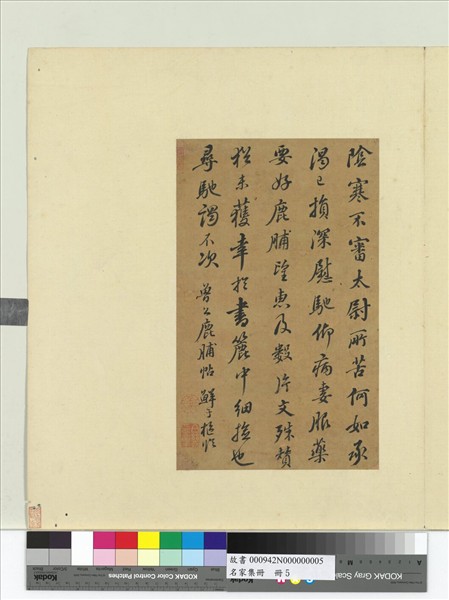 陰寒不審太尉所苦何如承
渴已損深慰馳仰病妻服藥
要好鹿脯望惠及數片文殊贊
猶未獲幸於書簏中細捨也
尋馳謁不次 魯公鹿脯帖 鮮于樞臨
故書 000942N000000005
名家集冊 冊 5
Kodak
KODAK Color Control Patches
KODAK Gray Scale